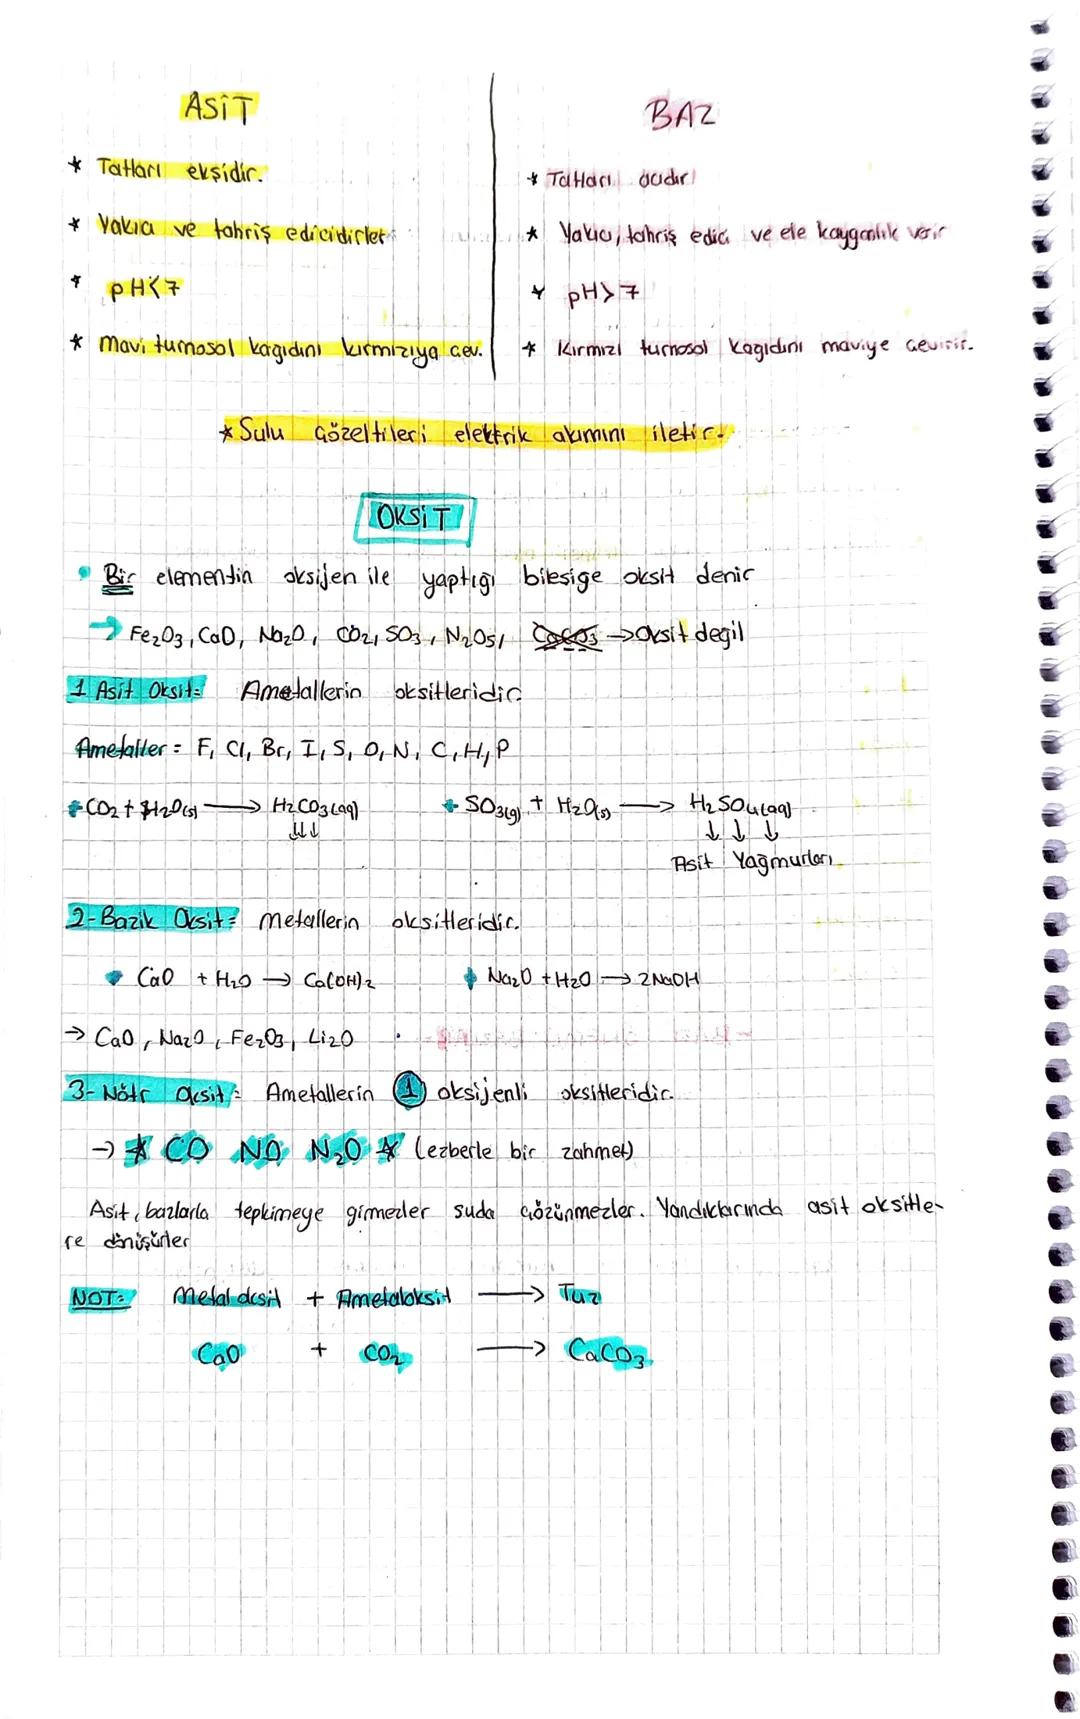 ASİT
* Tatları ekşidir.
* Yakıcı ve tahriş edicidirler
* pH<7
* Mavi turnosol kağıdını kırmızıya çev.
BAZ
* Tatları acıdır
* Yakıcı, tahriş edici ve ele kayganlık verir
* pH>7
* Kırmızı turnosol kağıdını maviye çevirir.
* Sulu çözeltileri elektrik akımını iletir.
OKSİT
• Bir elementin oksijen ile yaptığı bileşiğe oksit denir
→ Fe₂O₃, CaO, Na₂O, CO₂, SO₃, N₂O₅, CaCO₃ → Oksit değil
1 Asit Oksit= Ametallerin oksitleridir.
Ametaller = F, Cl, Br, I, S, O, N, C, H, P
CO₂ + H₂O(s) → H₂CO₃(aq)
↓↓↓
SO₃(g) + H₂O(s) → H₂SO₄(aq)
↓ ↓ ↓
Asit Yağmurları
2-Bazik Oksit= Metallerin oksitleridir.
CaO + H₂O → Ca(OH)₂
Na₂O + H₂O → 2NaOH
→ CaO, Na₂O, Fe₂O₃, Li₂O
3- Nötr Oksit= Ametallerin 1 oksijenli oksitleridir.
→ * CO NO N₂O * (ezberle bir zahmet)
Asit, bazlarla tepkimeye girmezler suda çözünmezler. Yandıklarında asit oksitle-
re dönüşürler
NOT: Metal oksit + Ametaloksit → Tuz
CaO + CO₂ → CaCO₃